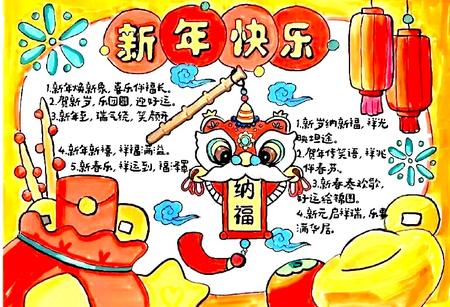 新年快乐
1.新年焕新象,喜乐伴福长。
2.贺新岁,乐团圆,迎好运。
3.新年至,瑞气绕,笑颜开
4.新年新禧,祥福满溢。
5.新春乐,祥运到,福泽厚
纳福
1.新岁纳新福,祥光
映坦途。
2.贺年传笑语,祥兆
伴春苏。
3.新春奏欢歌,
好运绘锦图。
4.新元启祥瑞,乐事
满华居。